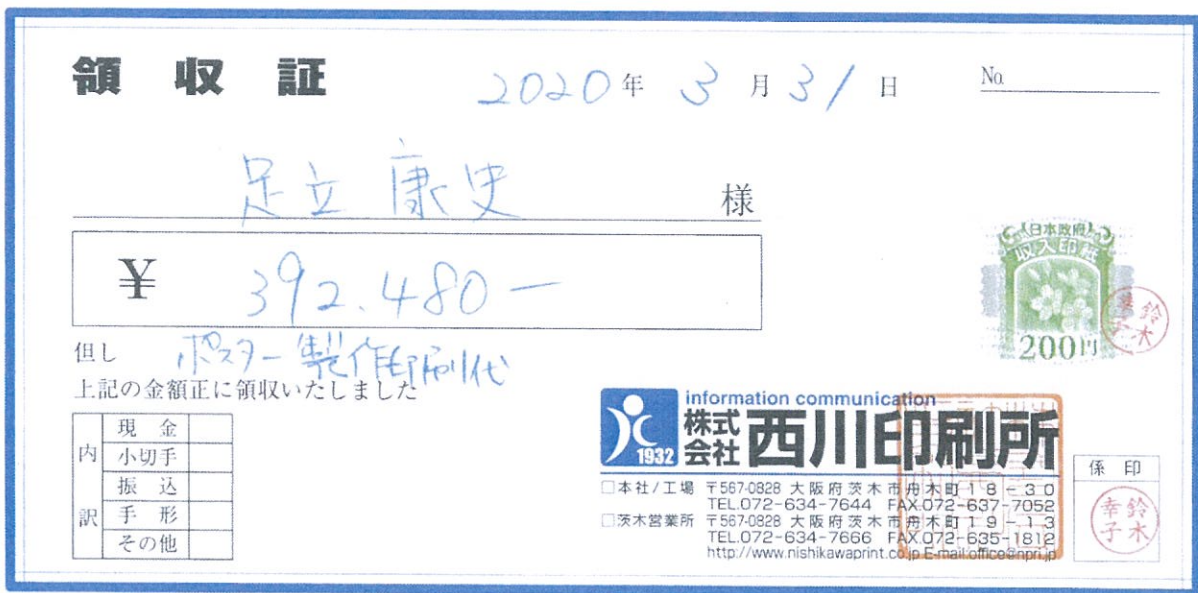 領収証 2020年3月31日 No.
足立康史 様
¥ 392.480-
但し ポスター製作印刷代
上記の金額正に領収いたしました
日本政府
収入印紙
200円
鈴木幸子
内訳
現金
小切手
振込
手形
その他
information communication
1932 株式会社 西川印刷所
□本社/工場 〒567-0828 大阪府茨木市舟木町18-30
TEL.072-634-7644 FAX.072-637-7052
□茨木営業所 〒567-0828 大阪府茨木市舟木町19-13
TEL.072-634-7666 FAX.072-635-1812
http://www.nishikawaprint.co.jp E-mail:office@npri.jp
係印
鈴木幸子